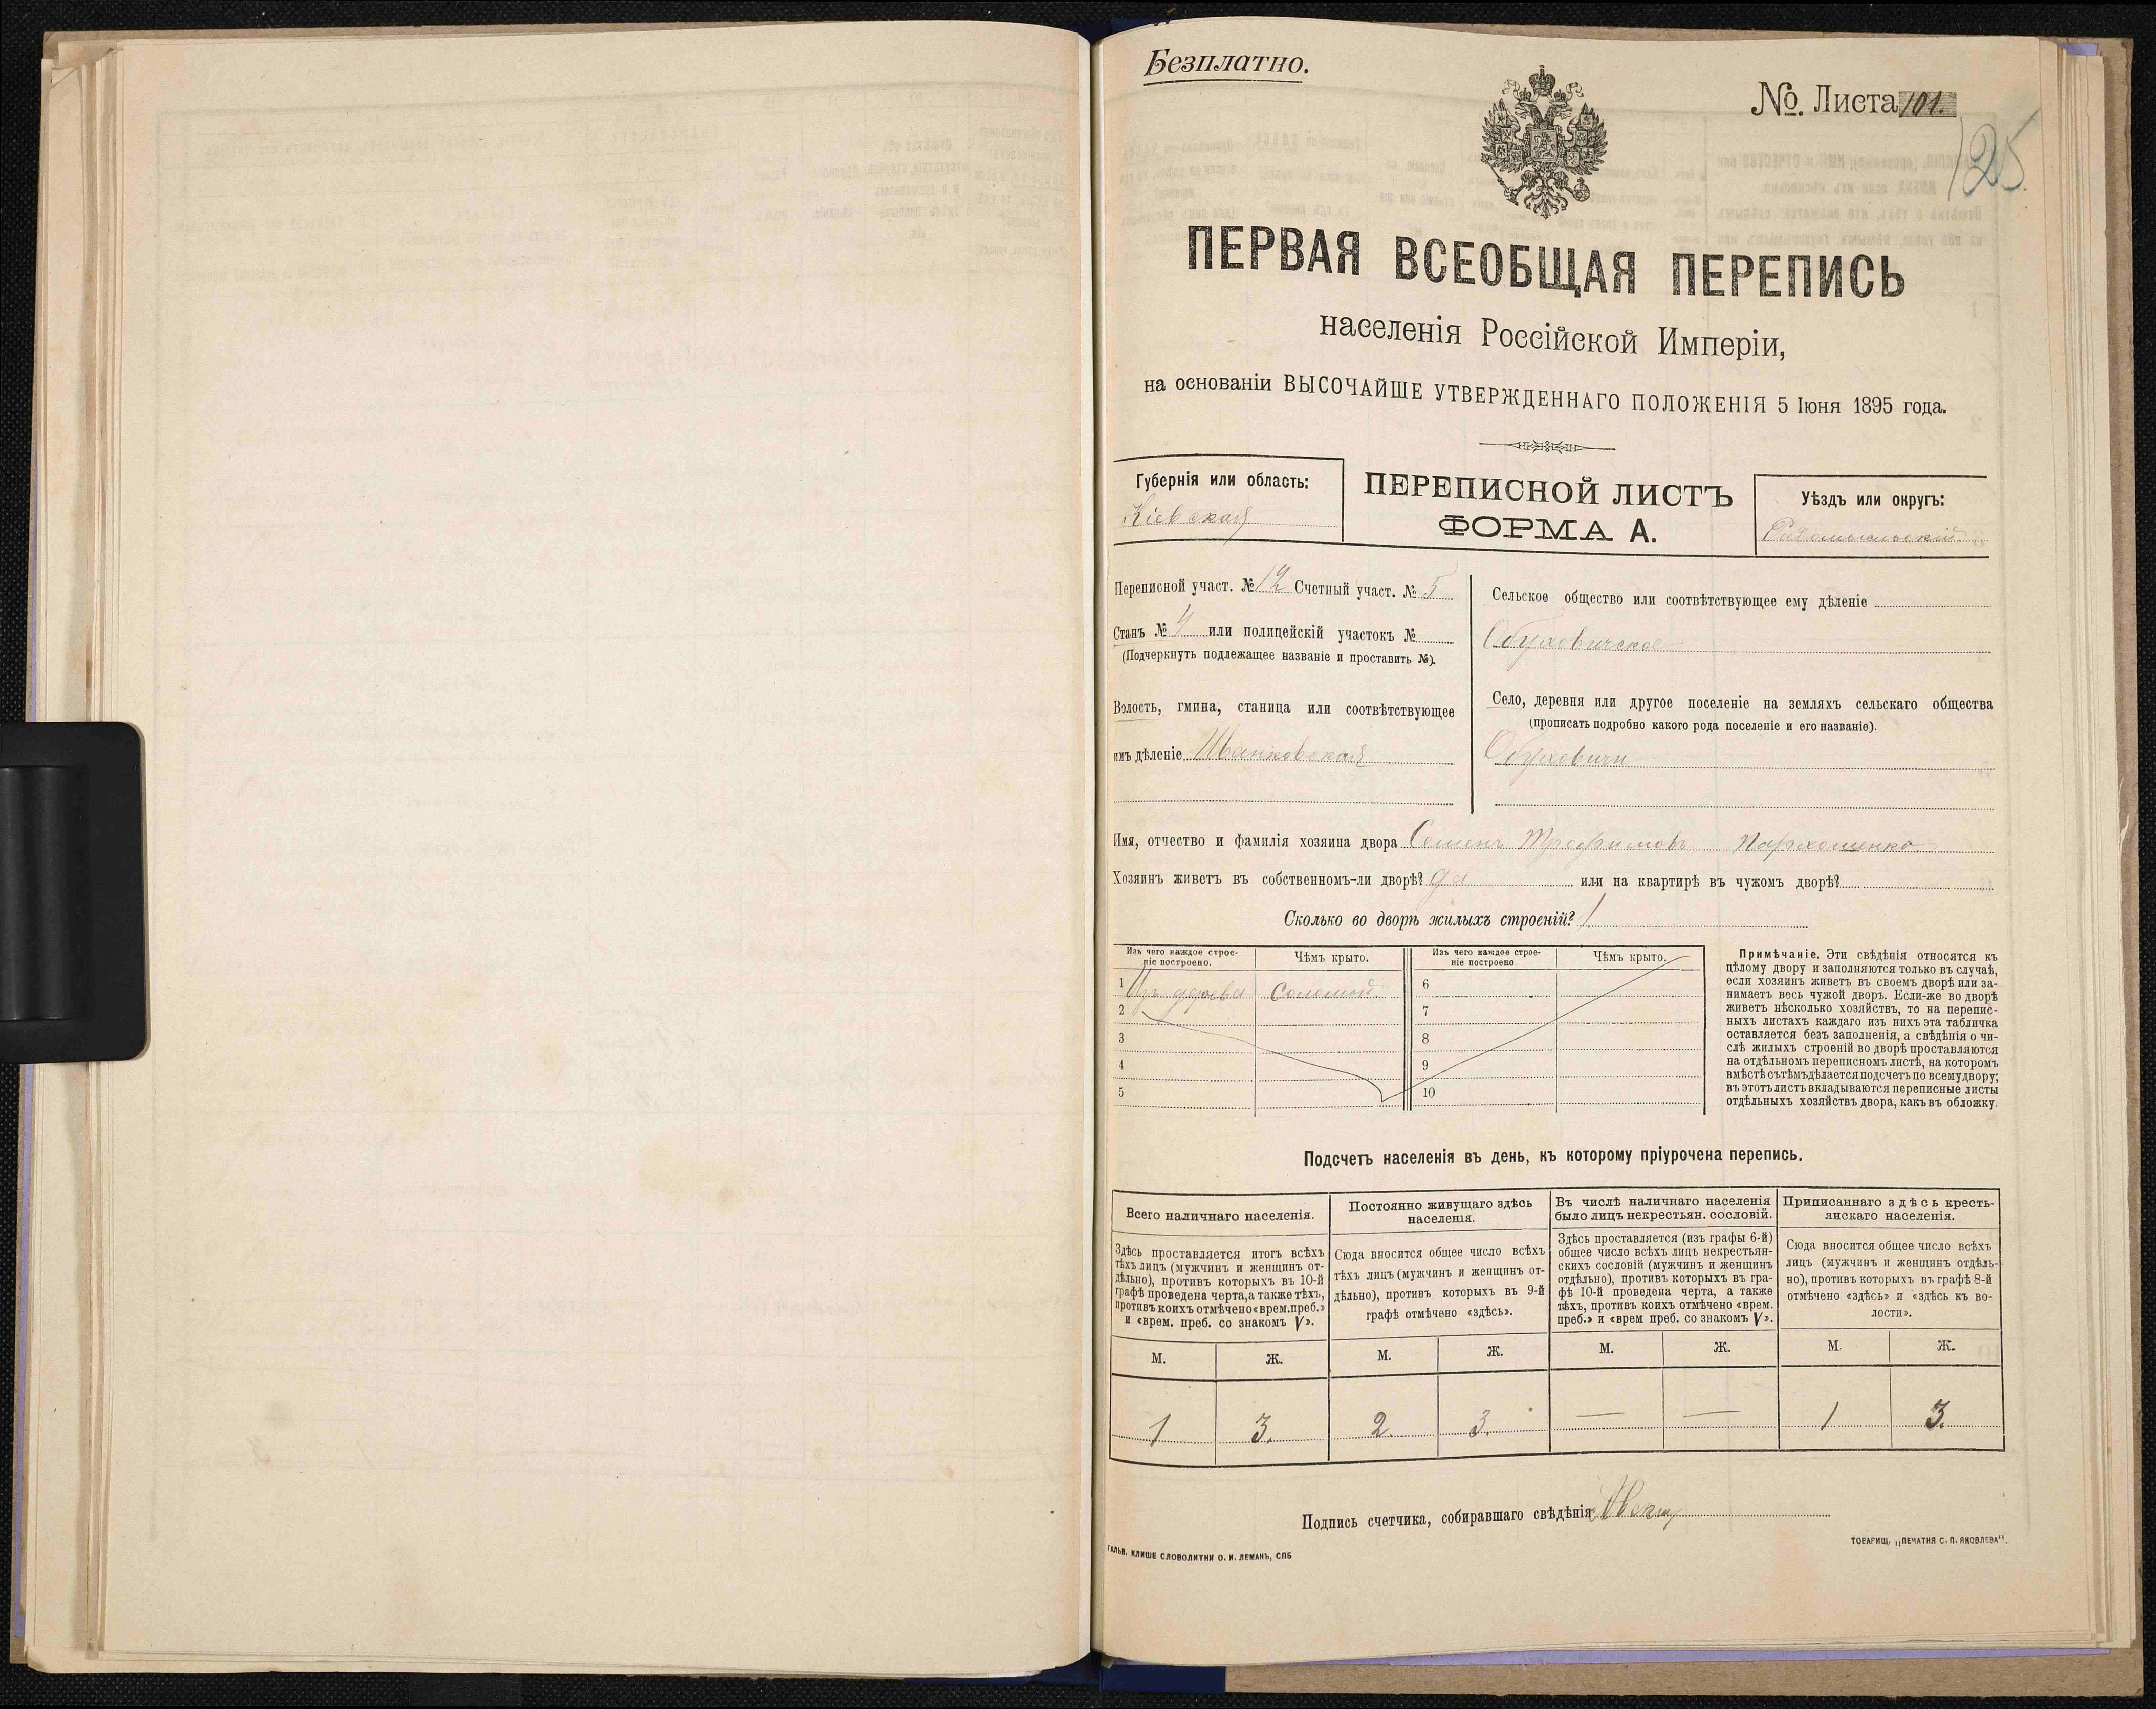 Безплатно.
№. Листа 101.
125.
ПЕРВАЯ ВСЕОБЩАЯ ПЕРЕПИСЬ
населенія Россійской Имперіи,
на основаніи ВЫСОЧАЙШЕ УТВЕРЖДЕННАГО ПОЛОЖЕНІЯ 5 Іюня 1895 года.
Губернія или область:
Кіевская
ПЕРЕПИСНОЙ ЛИСТЪ
ФОРМА А.
Уѣздъ или округъ:
Радомысльскій
Переписной участ. № 12 Счетный участ. № 5
Станъ № 4 или полицейскій участокъ №
(Подчеркнуть подлежащее названіе и проставить №).
Волость, гмина, станица или соотвѣтствующее
имъ дѣленіе Иванковская
Сельское общество или соотвѣтствующее ему дѣленіе
Обуховичское
Село, деревня или другое поселеніе на земляхъ сельскаго общества
(прописать подробно какого рода поселеніе и его названіе).
Обуховичи
Имя, отчество и фамилія хозяина двора Семенъ Трофимовъ Пархоменко
Хозяинъ живетъ въ собственномъ-ли дворѣ? да или на квартирѣ въ чужомъ дворѣ?
Сколько во дворѣ жилыхъ строеній? 1
Изъ чего каждое строе-
ніе построено.
Чѣмъ крыто.
Изъ чего каждое строе-
ніе построено
Чѣмъ крыто.
1 Изъ дерева Соломой. 6
2 7
3 8
4 9
5 10
Примѣчаніе. Эти свѣдѣнія относятся къ
цѣлому двору и заполняются только въ случаѣ,
если хозяинъ живетъ въ своемъ дворѣ или за-
нимаетъ весь чужой дворъ. Если-же во дворѣ
живетъ нѣсколько хозяйствъ, то на перепис-
ныхъ листахъ каждаго изъ нихъ эта табличка
оставляется безъ заполненія, а свѣдѣнія о чи-
слѣ жилыхъ строеній во дворѣ проставляются
на отдѣльномъ переписномъ листѣ, на которомъ
вмѣстѣ съ тѣмъ дѣлается подсчетъ по всему двору;
въ этотъ листъ вкладываются переписные листы
отдѣльныхъ хозяйствъ двора, какъ въ обложку.
Подсчетъ населенія въ день, къ которому пріурочена перепись.
Всего наличнаго населенія.
Здѣсь проставляется итогъ всѣхъ
тѣхъ лицъ (мужчинъ и женщинъ от-
дѣльно), противъ которыхъ въ 10-й
графѣ проведена черта, а также тѣхъ,
противъ коихъ отмѣчено «врем. преб.»
и «врем. преб. со знакомъ V».
Постоянно живущаго здѣсь
населенія.
Сюда вносится общее число всѣхъ
тѣхъ лицъ (мужчинъ и женщинъ от-
дѣльно), противъ которыхъ въ 9-й
графѣ отмѣчено «здѣсь».
Въ числѣ наличнаго населенія
было лицъ некрестьян. сословій.
Здѣсь проставляется (изъ графы 6-й)
общее число всѣхъ лицъ некрестьян-
скихъ сословій (мужчинъ и женщинъ
отдѣльно), противъ которыхъ въ гра-
фѣ 10-й проведена черта, а также
тѣхъ, противъ коихъ отмѣчено «врем.
преб.» и «врем преб. со знакомъ V».
Приписаннаго здѣсь кресть-
янскаго населенія.
Сюда вносится общее число всѣхъ
лицъ (мужчинъ и женщинъ отдѣль-
но), противъ которыхъ въ графѣ 8-й
отмѣчено «здѣсь» и «здѣсь къ во-
лости».
М. Ж. М. Ж. М. Ж. М. Ж.
1 3. 2. 3. — — 1 3.
Подпись счетчика, собиравшаго свѣдѣнія
ГАЛЬВ. КЛИШЕ СЛОВОЛИТНИ О. И. ЛЕМАНЪ, СПБ
ТОВАРИЩ. „ПЕЧАТНЯ С. П. ЯКОВЛЕВА".